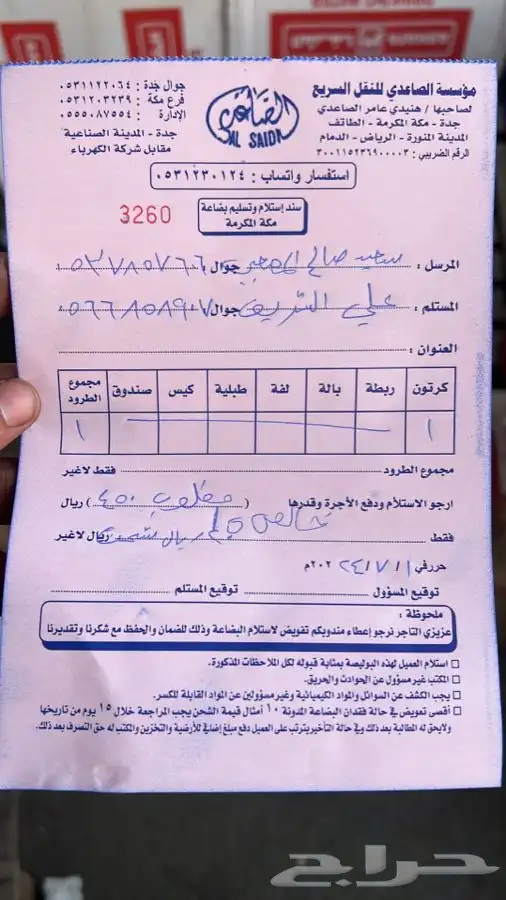 مؤسسة الصاعدي للنقل السريع
لصاحبها / هنيدي عامر الصاعدي
جدة - مكة المكرمة - الطائف
المدينة المنورة - الرياض - الدمام
الرقم الضريبي: ٣٠٠١١٥٢٣٦٩٠٠٠٠٣
الصاعدي
AL SAIDI
جوال جدة : ٠٥٣١١٢٢٠٦٤
فرع مكة : ٠٥٣١٢٠٣٢٣٩
الإدارة : ٠٥٥٥٠٨٧٥٥٤
جدة - المدينة الصناعية
مقابل شركة الكهرباء
استفسار واتساب : ٠٥٣١٢٣٠١٢٤
سند إستلام وتسليم بضاعة
مكة المكرمة
3260
المرسل : سعيد صالح جوال : ٠٥٣٧٨٥٧٦٦
المستلم : علي الشريف جوال : ٠٥٦٦٨٥٨٩٠٧
العنوان :
كرتون ربطة بالة لفة طبلية كيس صندوق مجموع الطرود
١ ١
مجموع الطرود فقط لاغير
ارجو الاستلام ودفع الأجرة وقدرها ( مطلوب ٤٥٠ ) ريال
فقط خالص ريال لاغير
حرر في ٢٠٢٤/٧/١م
توقيع المسؤول توقيع المستلم
ملحوظة :
عزيزي التاجر نرجو إعطاء مندوبكم تفويض لاستلام البضاعة وذلك للضمان والحفظ مع شكرنا وتقديرنا
استلام العميل لهذه البوليصة بمثابة قبوله لكل الملاحظات المذكورة.
المكتب غير مسؤول عن الحوادث والحريق.
يجب الكشف عن السوائل والمواد الكيميائية وغير مسؤولين عن المواد القابلة للكسر.
أقصى تعويض في حالة فقدان البضاعة المدونة ١٠ أمثال قيمة الشحن يجب المراجعة خلال ١٥ يوم من تاريخها
ولايحق له المطالبة بعد ذلك وفي حالة التأخير يترتب على العميل دفع مبلغ إضافي للأرضية والتخزين والمكتب له حق التصرف بعد ذلك.
حراج